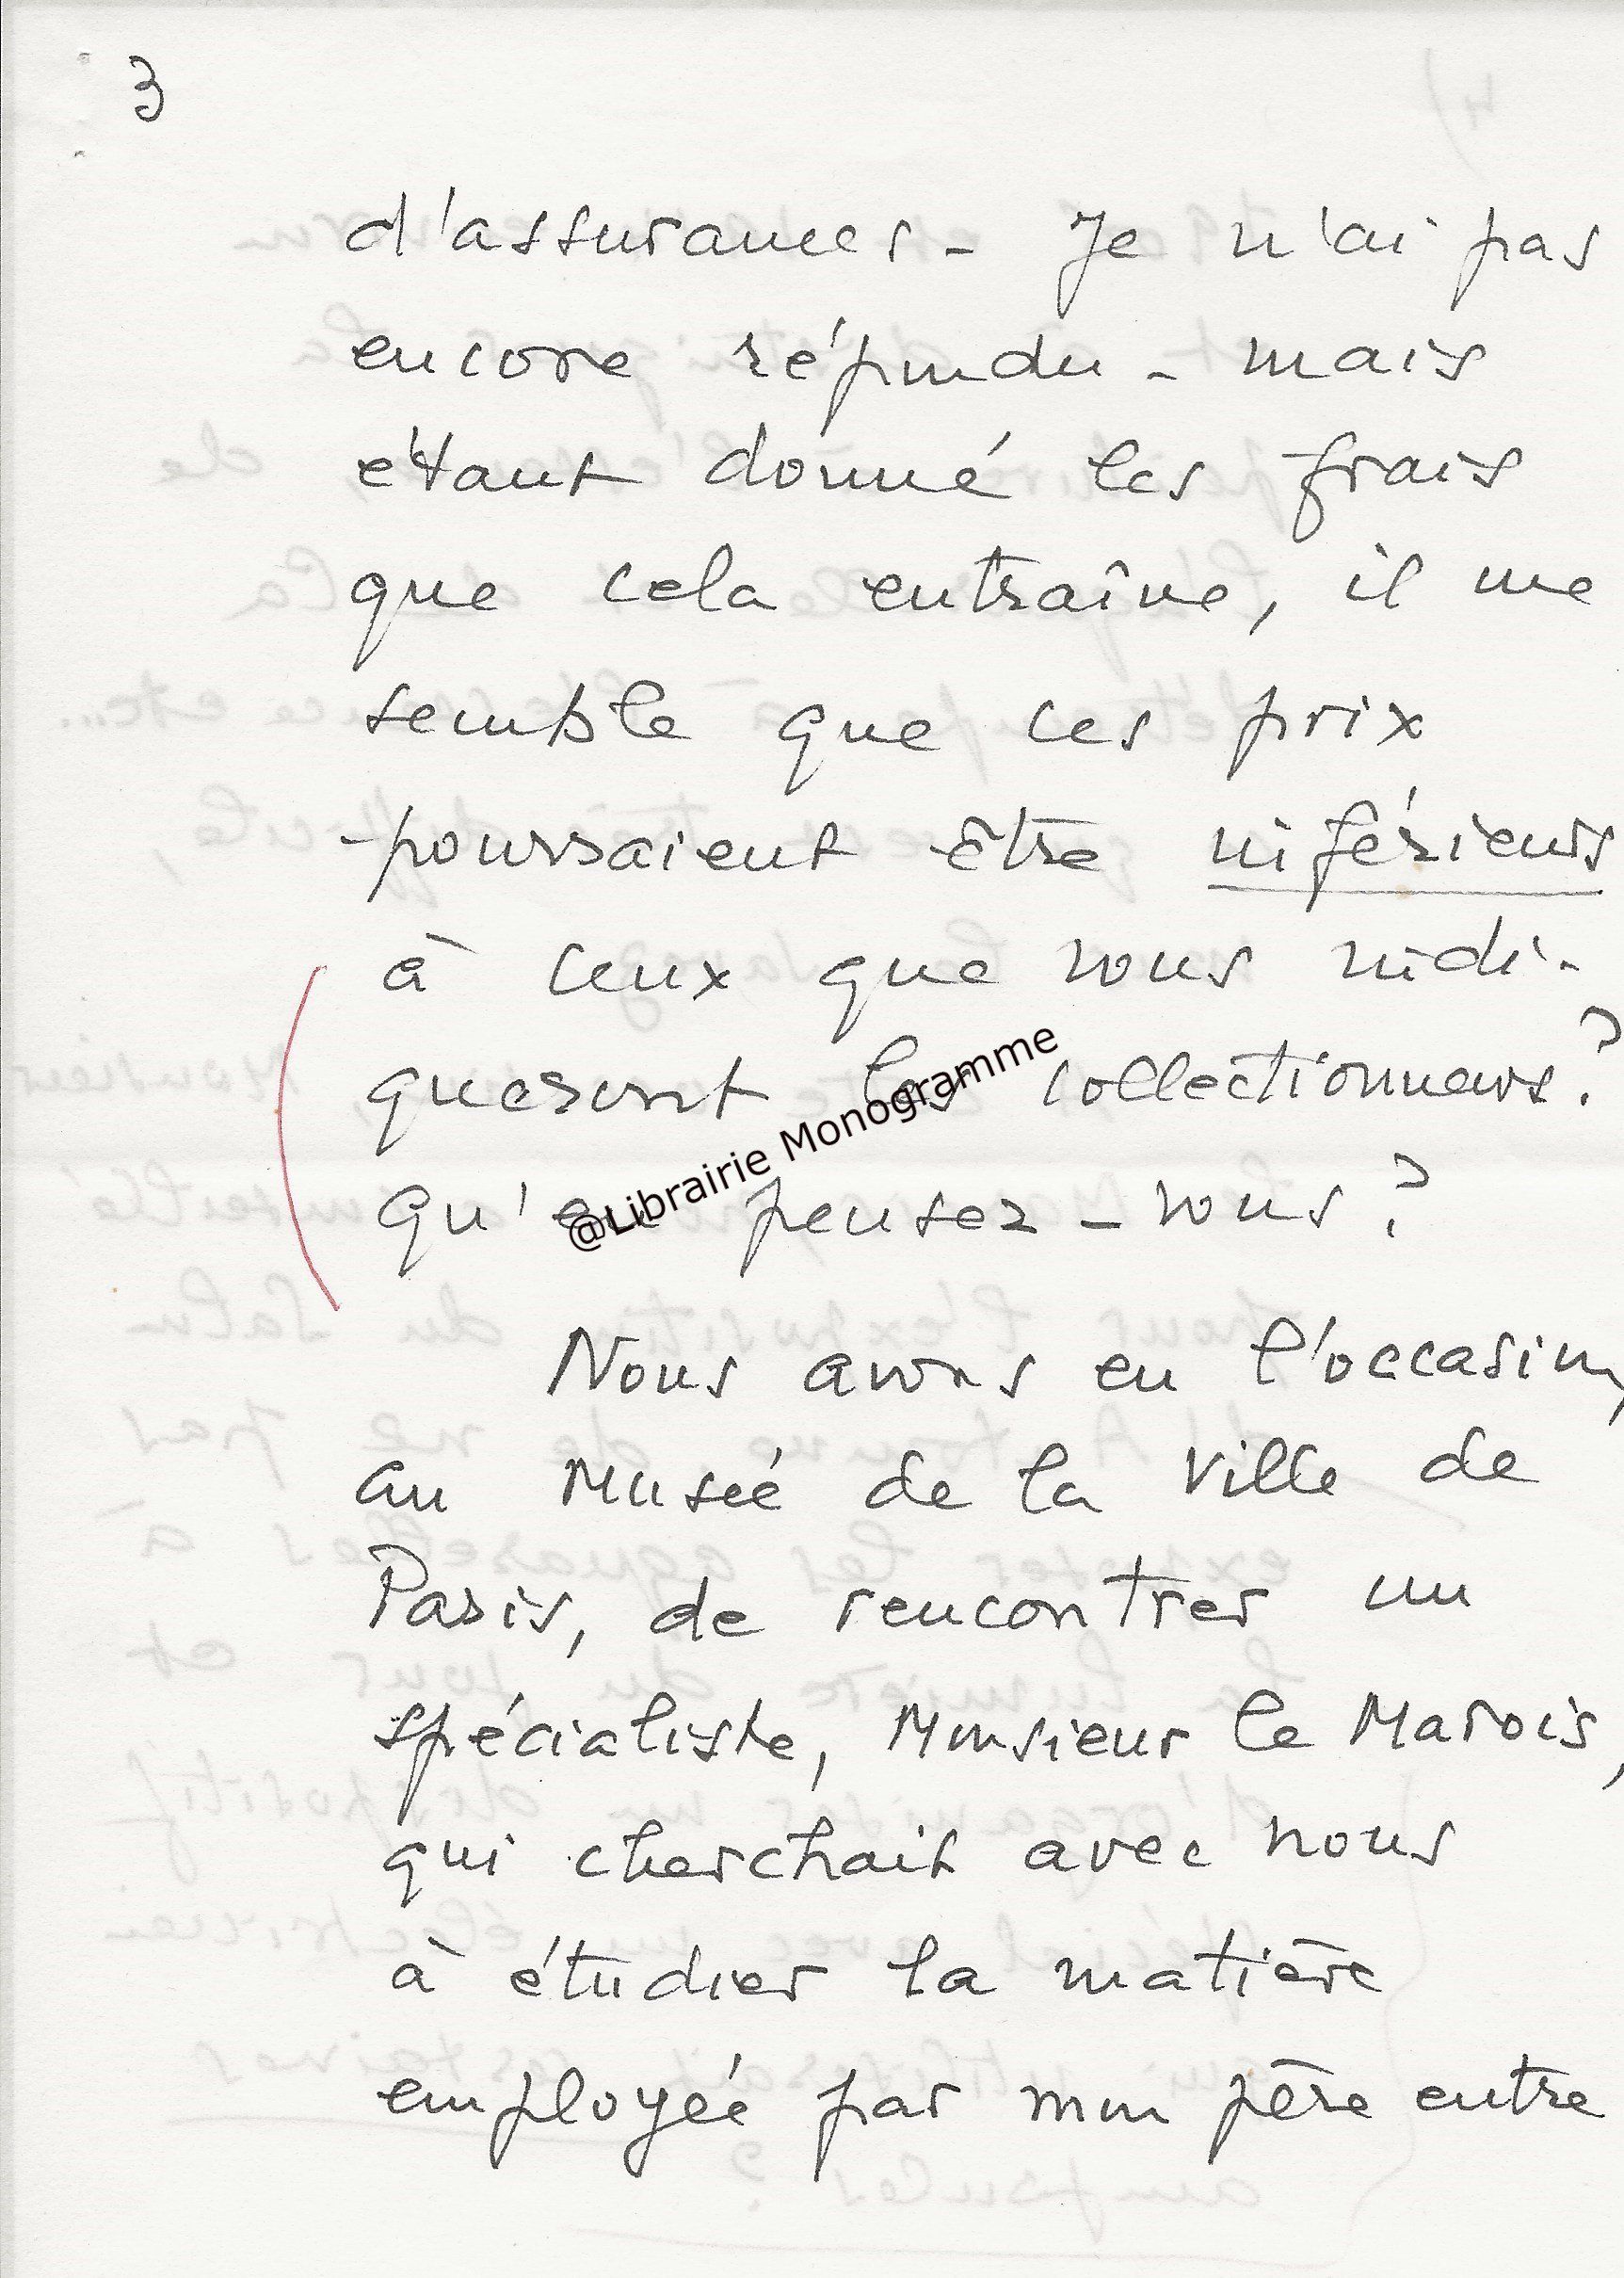 3
d'assurances - Je n'ai pas
encore répondu - mais
étant donné les frais
que cela entraîne, il me
semble que ces prix
pourraient être inférieurs
à ceux que vous indi-
queront les collectionneurs ?
Qu'en pensez-vous ?
Nous avons eu l'occasion,
au Musée de la Ville de
Paris, de rencontrer un
spécialiste, Monsieur le Marois,
qui cherchait avec nous
à étudier la matière
employée par mon père entre
@Librairie Monogramme